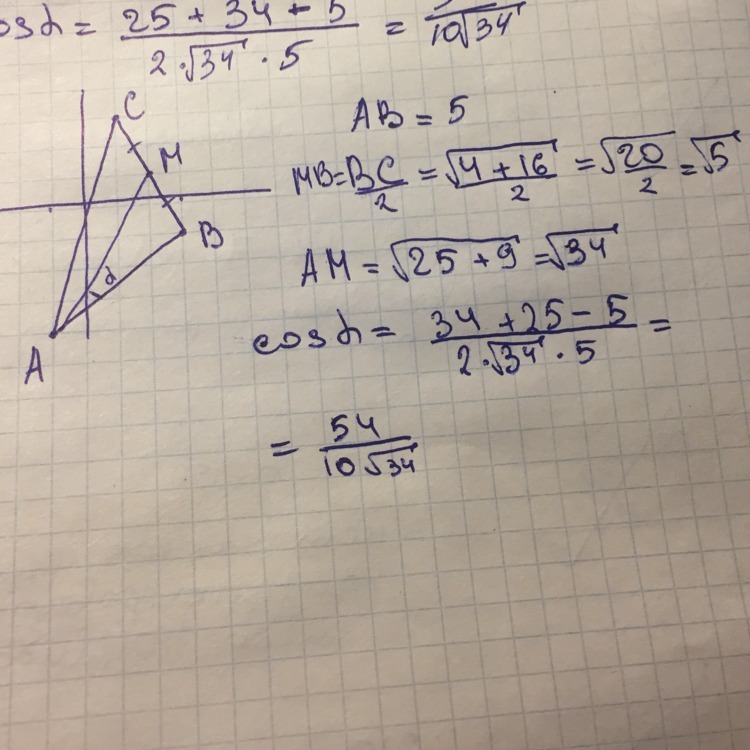 cos α = (25 + 34 - 5) / (2·√34 · 5) = / (10√34)
C
M
B
α
A
AB = 5
MB = BC/2 = √(4 + 16)/2 = √20/2 = √5
AM = √(25 + 9) = √34
cos α = (34 + 25 - 5) / (2·√34 · 5) =
= 54 / (10√34)